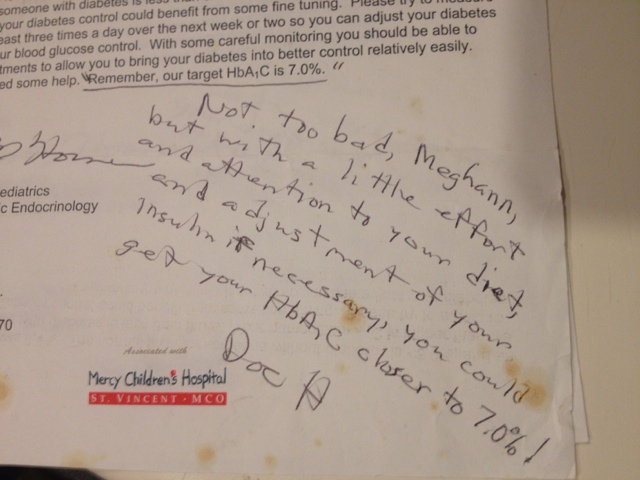 someone with diabetes is less tha
your diabetes control could benefit from some fine tuning. Please try to measure
east three times a day over the next week or two so you can adjust your diabetes
ur blood glucose control. With some careful monitoring you should be able to
tments to allow you to bring your diabetes into better control relatively easily.
ed some help. "Remember, our target HbA₁C is 7.0%."
Not too bad, Meghann,
but with a little effort
and attention to your diet,
and adjustment of your
insulin if necessary, you could
get your HbA₁C closer to 7.0%!
Doc H
ediatrics
c Endocrinology
70
Associated with
Mercy Children's Hospital
ST. VINCENT · MCO